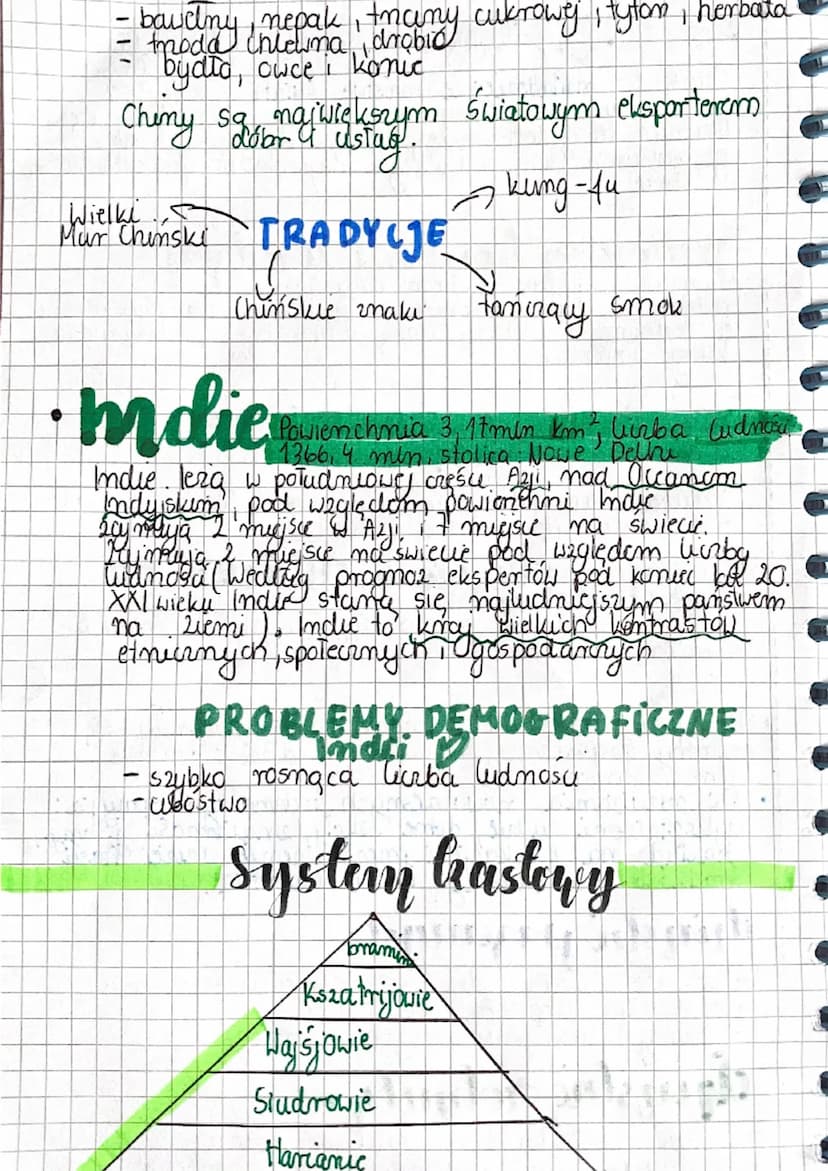 - bawełny, rzepak, trzciny cukrowej, tytoń, herbata
- trzoda chlewna, drobić
- bydło, owce i konie
Chiny są największym światowym eksporterem
dóbr i usług.
kung-fu
Wielki
Mur Chiński
TRADYCJE
Chińskie znaki
tańczący smok
• Indie Powierzchnia 3,17mln km², liczba ludności
1366,4 mln, stolica: Nowe Delhi
Indie leżą w południowej części Azji, nad Oceanem
Indyjskim, pod względem powierzchni Indie
zajmują 2 miejsce w Azji i 7 miejsce na świecie.
Zajmują 2 miejsce na świecie pod względem liczby
ludności (Według prognoz ekspertów pod koniec lat 20.
XXI wieku Indie staną się najludniejszym państwem
na ziemi). Indie to kraj wielkich kontrastów
etnicznych, społecznych i gospodarczych
PROBLEMY DEMOGRAFICZNE
Indii
- szybko rosnąca liczba ludności
- ubóstwo
System kastowy
bramini
Kszatrijowie
Wajśjowie
Siudrowie
Harianie